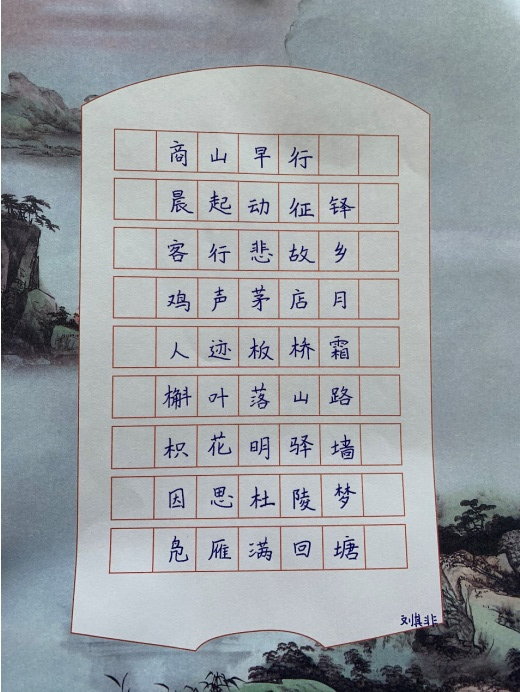 商山早行
晨起动征铎
客行悲故乡
鸡声茅店月
人迹板桥霜
槲叶落山路
枳花明驿墙
因思杜陵梦
凫雁满回塘
刘其非